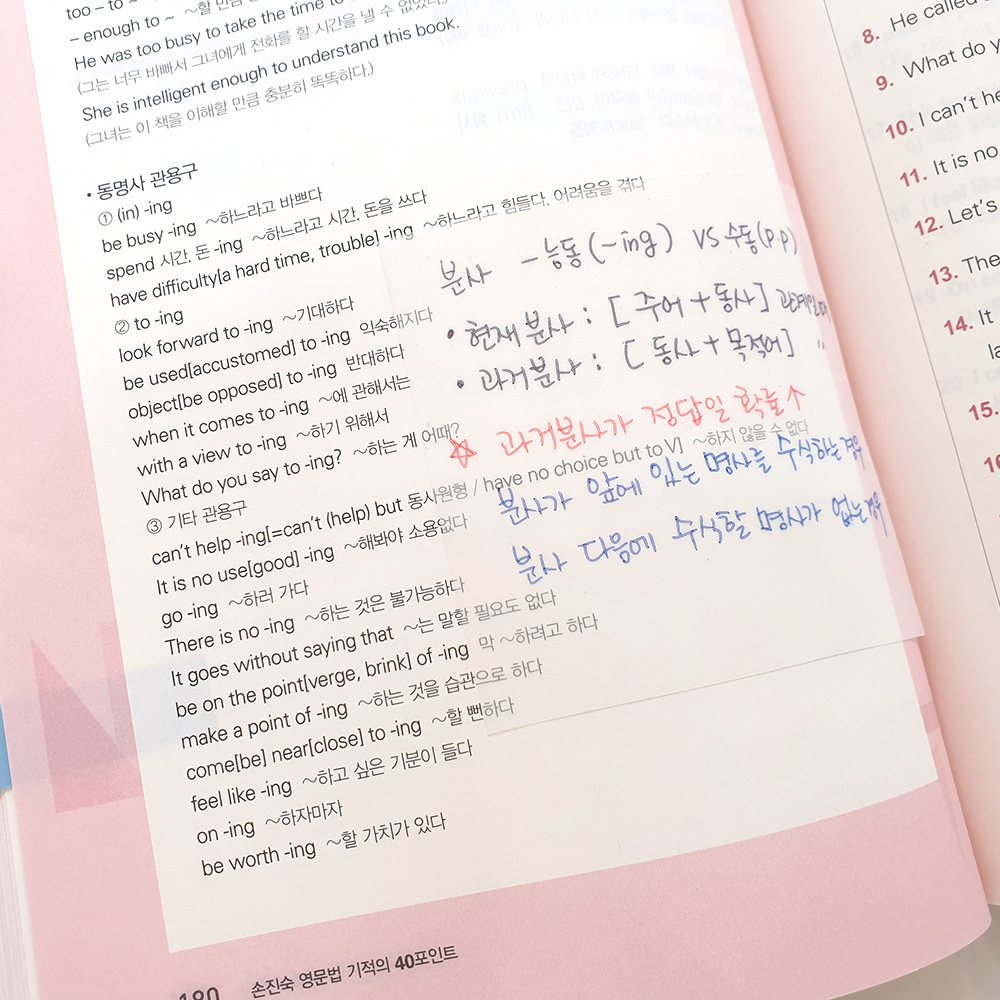 too – to ~
– enough to ~ ~할 만큼
He was too busy to take the time to
(그는 너무 바빠서 그녀에게 전화를 할 시간을 낼 수 없었다.)
She is intelligent enough to understand this book.
(그녀는 이 책을 이해할 만큼 충분히 똑똑하다.)
• 동명사 관용구
① (in) -ing
be busy -ing ~하느라고 바쁘다
spend 시간, 돈 -ing ~하느라고 시간, 돈을 쓰다
have difficulty[a hard time, trouble] -ing ~하느라고 힘들다, 어려움을 겪다
② to -ing
look forward to -ing ~기대하다
be used[accustomed] to -ing 익숙해지다
object[be opposed] to -ing 반대하다
when it comes to -ing ~에 관해서는
with a view to -ing ~하기 위해서
What do you say to -ing? ~하는 게 어때?
③ 기타 관용구
can't help -ing[=can't (help) but 동사원형 / have no choice but to V] ~하지 않을 수 없다
It is no use[good] -ing ~해봐야 소용없다
go -ing ~하러 가다
There is no -ing ~하는 것은 불가능하다
It goes without saying that ~는 말할 필요도 없다
be on the point[verge, brink] of -ing 막 ~하려고 하다
make a point of -ing ~하는 것을 습관으로 하다
come[be] near[close] to -ing ~할 뻔하다
feel like -ing ~하고 싶은 기분이 들다
on -ing ~하자마자
be worth -ing ~할 가치가 있다
분사 - 능동(-ing) VS 수동(P.P)
• 현재분사 : [주어 + 동사] 관계일 때
• 과거분사 : [동사 + 목적어] "
☆ 과거분사가 정답일 확률↑
분사가 앞에 있는 명사를 수식하는 경우
분사 다음에 수식할 명사가 없는 경우
180 손진숙 영문법 기적의 40포인트
8. He called
9. What do y
10. I can't he
11. It is no
12. Let's
13. The
14. It
15.